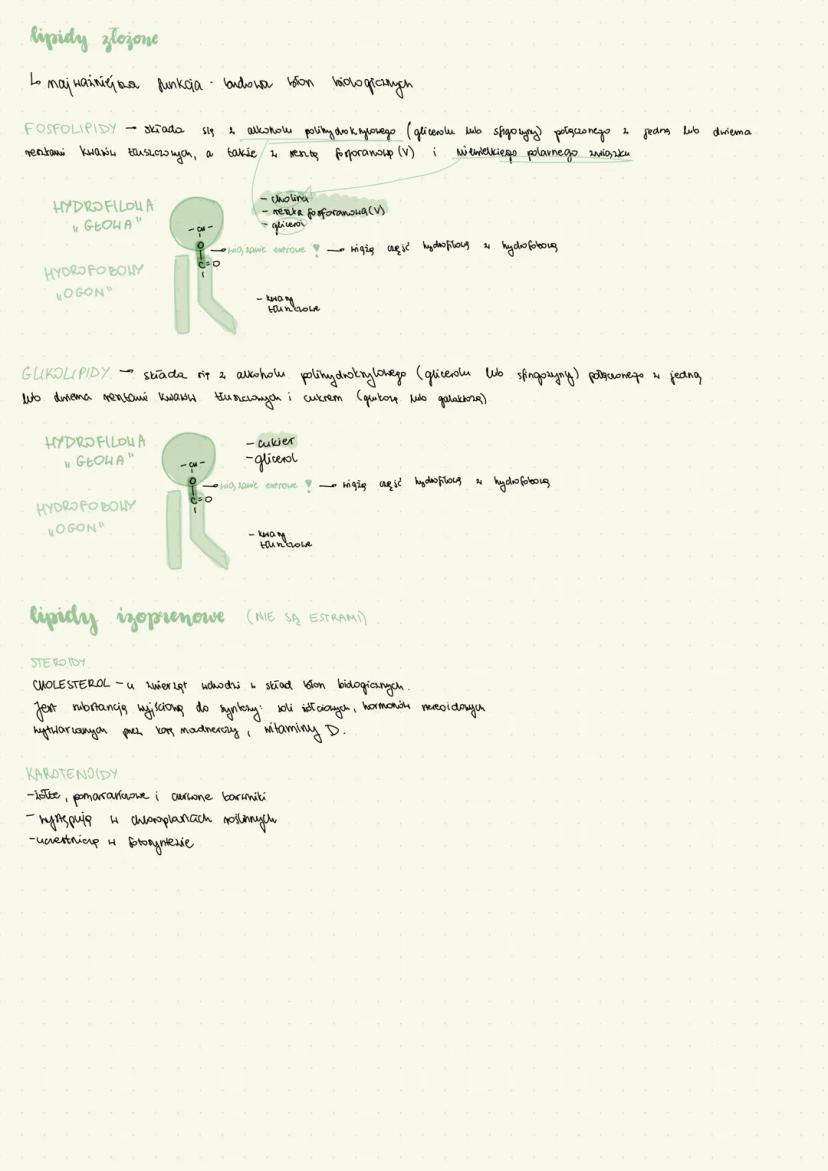 lipidy złożone
↳ najważniejsza funkcja - budowa błon biologicznych
FOSFOLIPIDY → składa się z alkoholu polihydroksylowego (glicerolu lub sfigozyny) połączonego z jedną lub dwiema
resztami kwasów tłuszczowych, a także z resztą fosforanową (V) i niewielkiego polarnego związku
HYDROFILOWA
"GŁOWA"
- cholina
- reszta fosforanowa (V)
- glicerol
- CH -
O
C=O
→ wiązanie estrowe ! → wiążą część hydrofilową z hydrofobową
HYDROFOBOWY
"OGON"
- kwasy
tłuszczowe
GLIKOLIPIDY → składa się z alkoholu polihydroksylowego (glicerolu lub sfingozyny) połączonego z jedną
lub dwiema resztami kwasów tłuszczowych i cukrem (glukozą lub galaktozą)
HYDROFILOWA
"GŁOWA"
- cukier
- glicerol
- CH -
O
C=O
→ wiązanie estrowe ! → wiążą część hydrofilową z hydrofobową
HYDROFOBOWY
"OGON"
- kwasy
tłuszczowe
lipidy izoprenowe (NIE SĄ ESTRAMI)
STEROIDY
CHOLESTEROL - u zwierząt wchodzi w skład błon biologicznych.
Jest substancją wyjściową do syntezy: soli żółciowych, hormonów steroidowych
wytwarzanych przez korę nadnerczy, witaminy D.
KAROTENOIDY
- żółte, pomarańczowe i czerwone barwniki
- występują w chloroplastach roślinnych
- uczestniczą w fotosyntezie